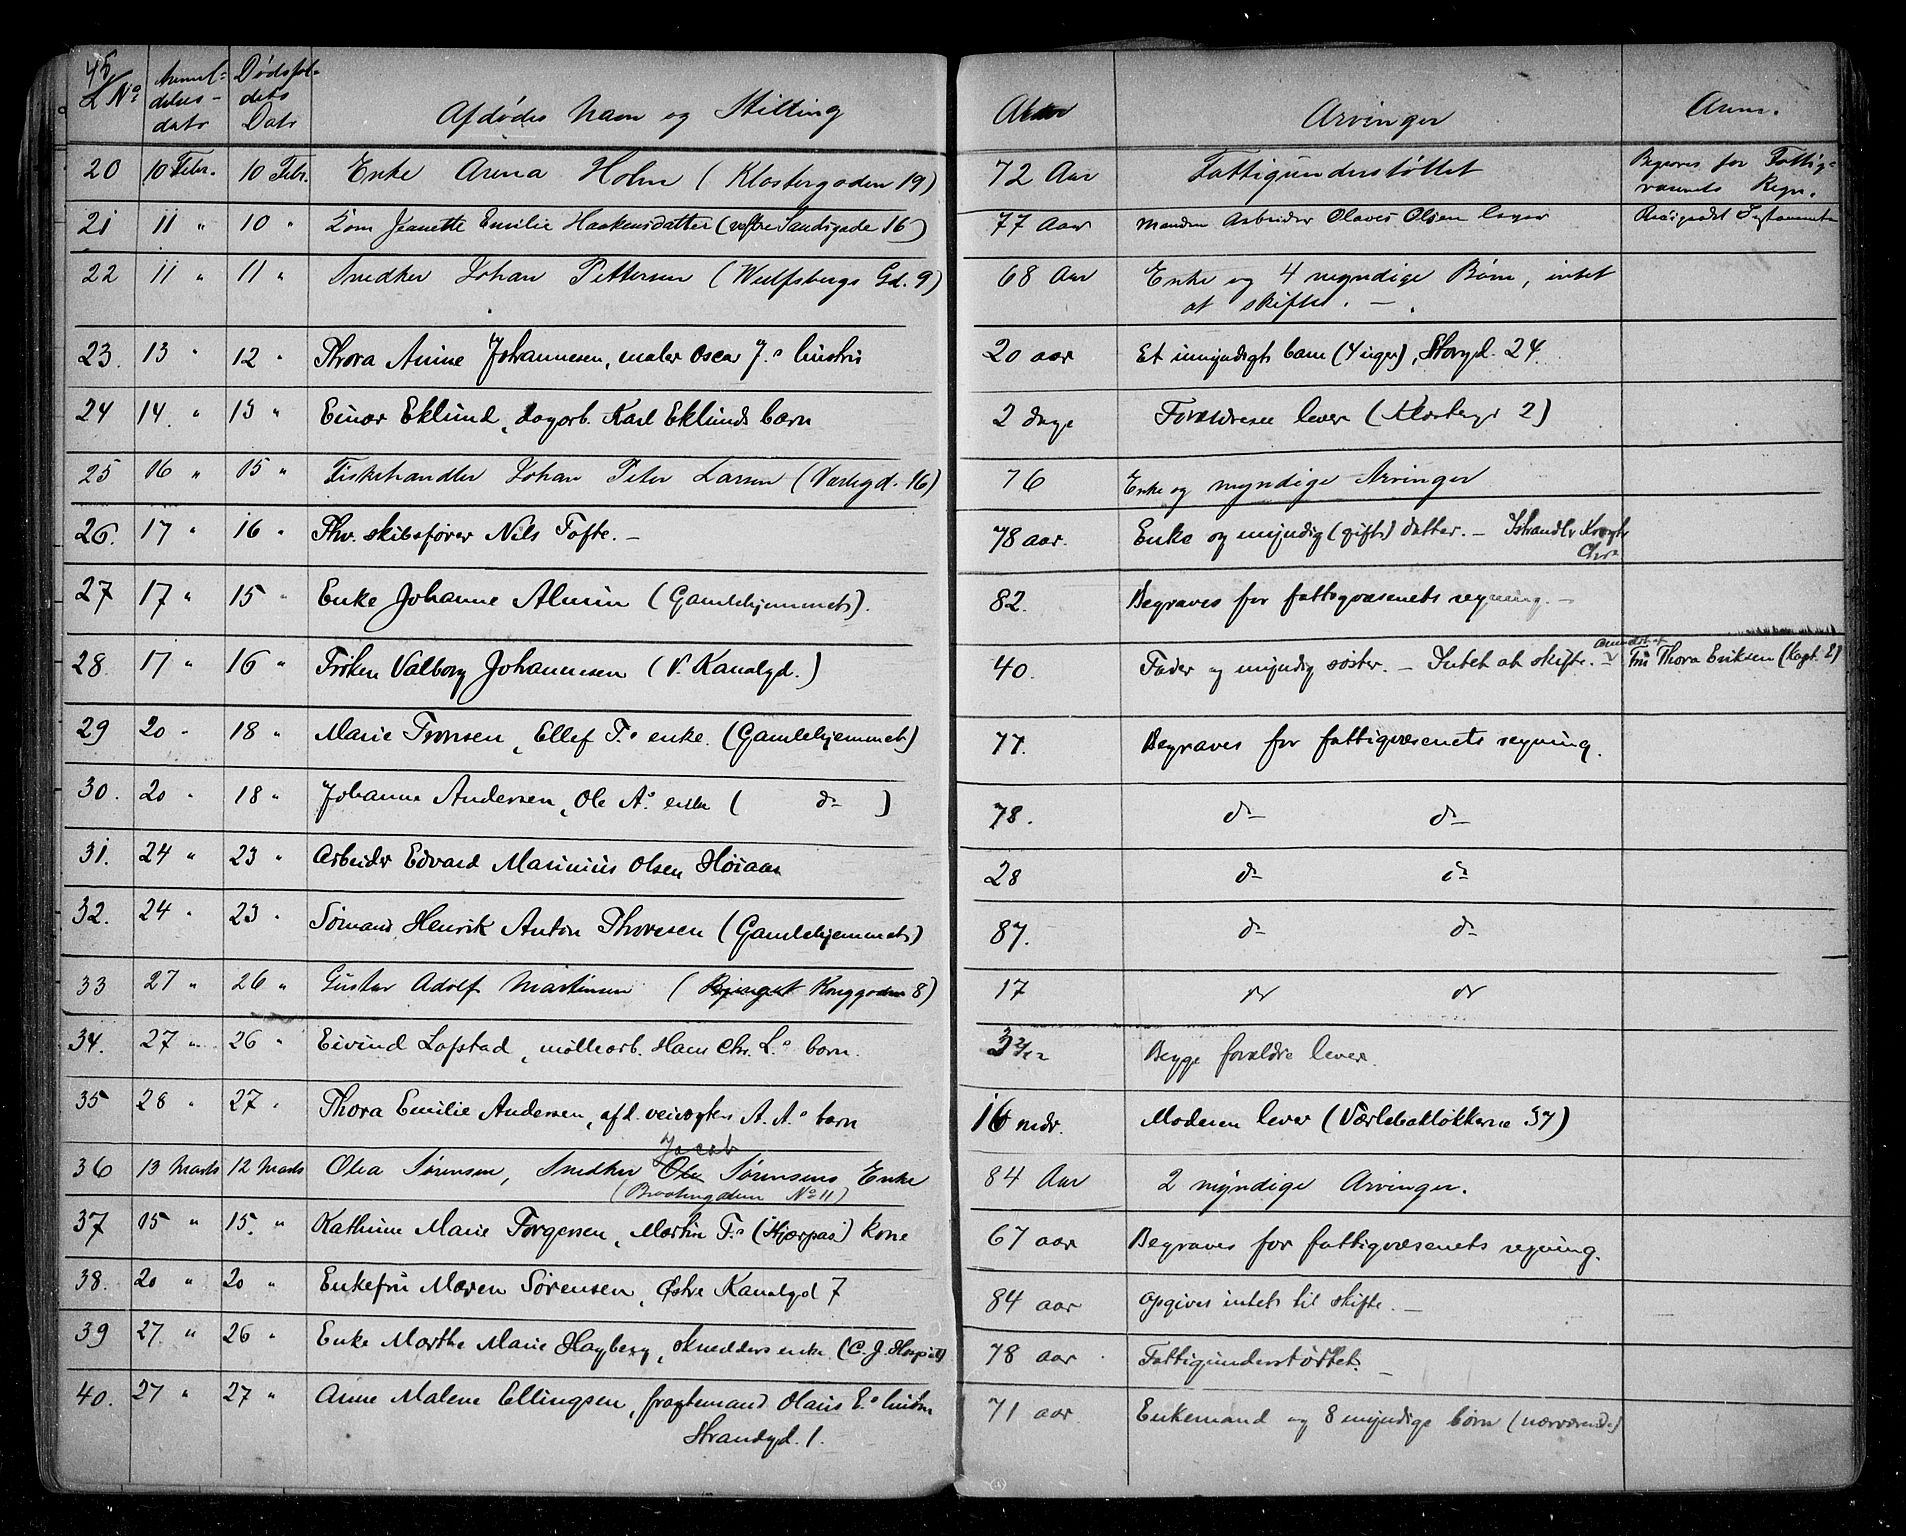 45
L No Anmeldelsesdato Dødsfaldets Dato Afdødes Navn og Stilling Alder Arvinger Anm.
20 10 Febr. 10 Febr. Enke Arena Holm (Klostergaden 19) 72 Aar Fattigunderstøttet Begraves for Fattigvæsnets Regn.
21 11 " 10 " Kone Jeanette Emilie Haakensdatter (vestre Sandsgade 16) 77 Aar Manden Arbeider Olaves Olsen lever
22 11 " 11 " Snedker Johan Pettersen (Wulfsbergs Gd. 9) 68 Aar Enke og 4 myndige Børn, intet
at skifte. —
23. 13 " 12 " Thora Anine Johannesen, maler Oscar J.s hustru 20 aar Et umyndigt barn (4 uger), Storgd. 24.
24 14. " 13 " Einar Eklund, dagarb. Karl Eklunds barn 2 dage Forældrene lever (Klostergd 2)
25 16 " 15 " Fiskehandler Johan Peter Larsen (Værlegd. 16) 76 Enke og myndige Arvinger
26. 17 " 16 " Fhv. skibsfører Nils Tofte. — 78 aar. Enke og myndig (gift) datter. —
27 17 " 15 " Enke Johanne Almin (Gamlehjemmet). 82. Begraves for fattigvæsenets regning. —
28. 17 " 16 " Frøken Valborg Johannesen (V. Kanalgd.) 40. Fader og myndig søster. — Intet at skifte. — anmeldt af Fru Thora Eriksen (Kgt. 2)
29 20 " 18 " Marie Tronsen, Ellef T.s enke. (Gamlehjemmet) 77. Begraves for fattigvæsenets regning.
30. 20 " 18 " Johanne Andersen, Ole A.s enke ( do ) 78. do do
31. 24 " 23 " Arbeider Edvard Marinius Olsen Høiaas 28 do do
32. 24 " 23 " Sømand Henrik Anton Thoresen (Gamlehjemmet) 87. do do
33 27 " 26 " Gustav Adolf Martinsen ( Konggaden 8) 17 do do
34. 27 " 26 " Eivind Lofstad, møllearb. Hans Chr. L.s barn. 3 2/12 Begge forældre lever.
35 28 " 27 " Thora Emilie Andersen, afd. veivogter A. A.s barn 16 mdr. Moderen lever (Værlebakløkkerne 37)
36 13 Marts 12 Marts Olea Sørensen, Snedker Ole Jacob Sørensens Enke 84 Aar 2 myndige Arvinger.
(Braatengaden No 11)
37 15 " 15. " Kathrine Marie Torgersen, Martin T.s (Hjerpaas) kone 67 aar Begraves for fattigvæsenets regning.
38. 20 " 20 " Enkefru Maren Sørensen, Østre Kanalgd 7 84 aar Opgives intet til skifte. —
39 27. " 26 " Enke Marthe Marie Hagberg, skredders enke (C. J. Hospital) 78 aar Fattigunderstøttet. —
40. 27 " 27 " Anne Malene Ellingsen, fragtemand Olaus E.s hustru 71 aar Enkemand og 8 myndige børn (nærværende)
Strandgd. 1.